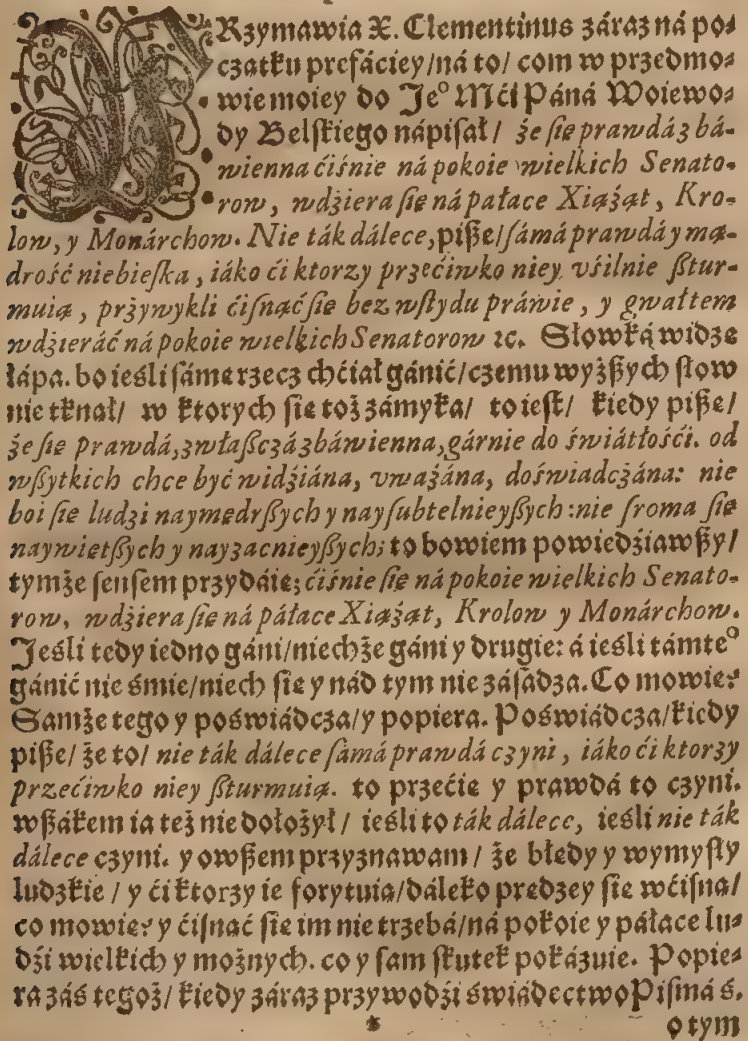 URzymawia X. Clementinus záraz ná po⸗
czatku prefáciey/ná to/ com w przedmo⸗
wie moiey do Jeº Mći Páná Woiewo⸗
dy Belskiego nápisał/ że się prawdá zbá-
wienna ćiśnie ná pokoie wielkich Senato-
row, wdźiera się ná pałace Xiążąt, Kro-
low, y Monárchow. Nie ták dálece, pisze/ sámá prawdá y mą-
drość niebieska, iáko ći ktorzy przećiwko niey vśilnie sztur-
muią, przywykli ćisnąć się bez wstydu práwie, y gwałtem
wdźieráć ná pokoie wielkich Senatorow ꝛc. Słowká widzę
łápa. bo ieśli sámę rzecz chćiał gánić/czemu wyższych słow
nie tknał/ w ktorych się toż zámyka/ to iest/ kiedy pisze/
że się prawdá, zwłaszczá zbáwienna, gárnie do świátłośći. od
wszytkich chce być widźiána, vważána, doświadczána: nie
boi się ludźi naymędrszych y naysubtelnieyszych: nie sroma się
naywiętszych y nayzacnieyszych; to bowiem powiedźiawszy/
tymże sensem przydáię; ćiśnie się ná pokoie wielkich Senato-
row, wdźiera się ná páłace Xiążąt, Krolow y Monárchow.
Jeśli tedy iedno gáni/niechże gáni y drugie: á ieśli támteº
gánić nie śmie/niech się y nád tym nie zásadza. Co mowię?
Samże tego y poświádcza/y popiera. Poświádcza/kiedy
pisze/ że to/ nie ták dálece sámá prawdá czyni, iáko ći ktorzy
przećiwko niey szturmuią. to przećię y prawdá to czyni.
wszákem ia też nie dołożył/ ieśli to ták dálece, ieśli nie ták
dálece czyni. y owszem przyznawam/ że błędy y wymysły
ludzkie/ y ći ktorzy ie forytuią/dáleko prędzey się wćisną/
co mowię? y ćisnąć się im nie trzebá/ná pokoie y páłace lu⸗
dźi wielkich y możnych. co y sam skutek pokázuie. Popie⸗
ra záś tegoż/ kiedy záraz przywodźi świádectwo Pismá ś.
*
o tym